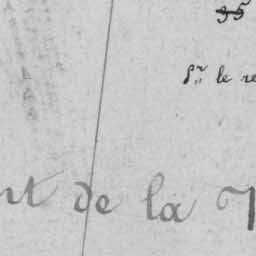 35
Sr le re
nt de la